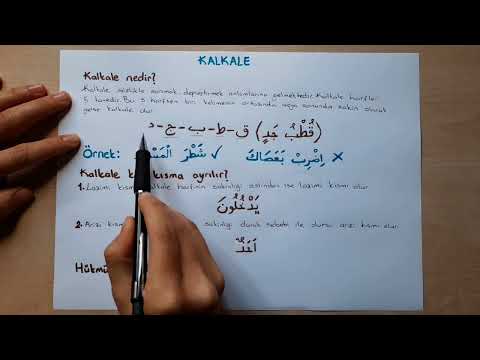 KALKALE
Kalkale nedir?
Kalkale sözlükte sarsmak depreştirmek anlamlarına gelmektedir. Kalkale harfleri
5 tanedir. Bu 5 harften biri kelimenin ortasında veya sonunda sakin olarak
gelse kalkale olur.
(قُطْبُ جَدٍ) ق-ط-ب-ج-د
Örnek: شَطْرَ الْمَسْ ✓ اِضْرِبْ بِعَصَاكَ ×
Kalkale kısma ayrılır?
1. Lazımi kısmı kalkale harfinin sakinliği aslından ise lazımi kısmı olur
يَدْخُلُونَ
2. Arızi kısmı sakinliği durak sebebi ile olursa arızi kısmı olur
اَحَدٌ
Hükmü